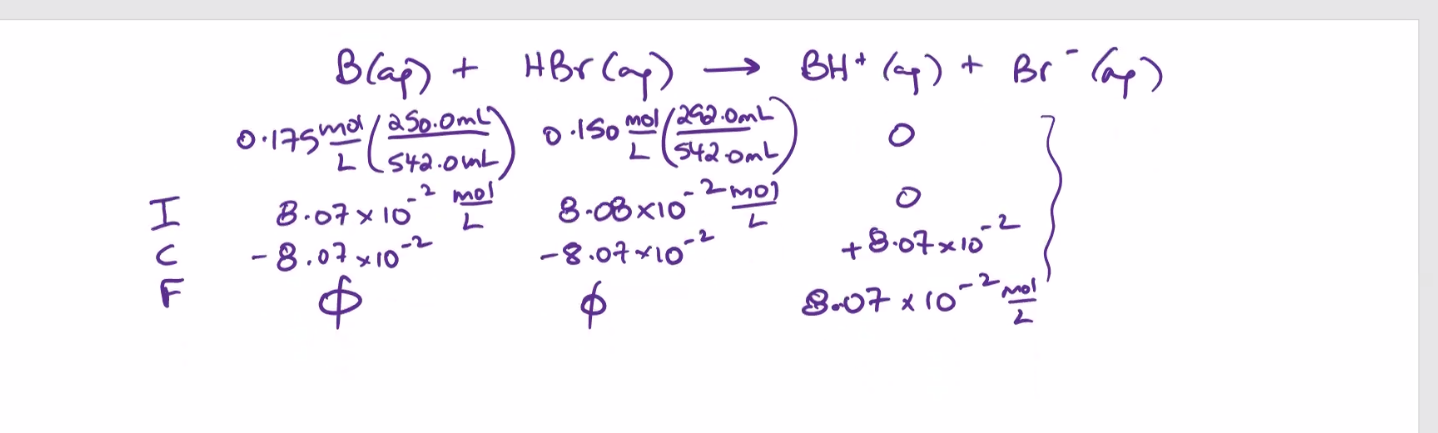 B(aq) + HBr(aq) → BH⁺(aq) + Br⁻(aq)
0.175 mol/L (250.0mL/542.0mL) 0.150 mol/L (292.0mL/542.0mL) 0
I 8.07 × 10⁻² mol/L 8.08 × 10⁻² mol/L 0
C - 8.07 × 10⁻² - 8.07 × 10⁻² + 8.07 × 10⁻²
F ϕ ϕ 8.07 × 10⁻² mol/L